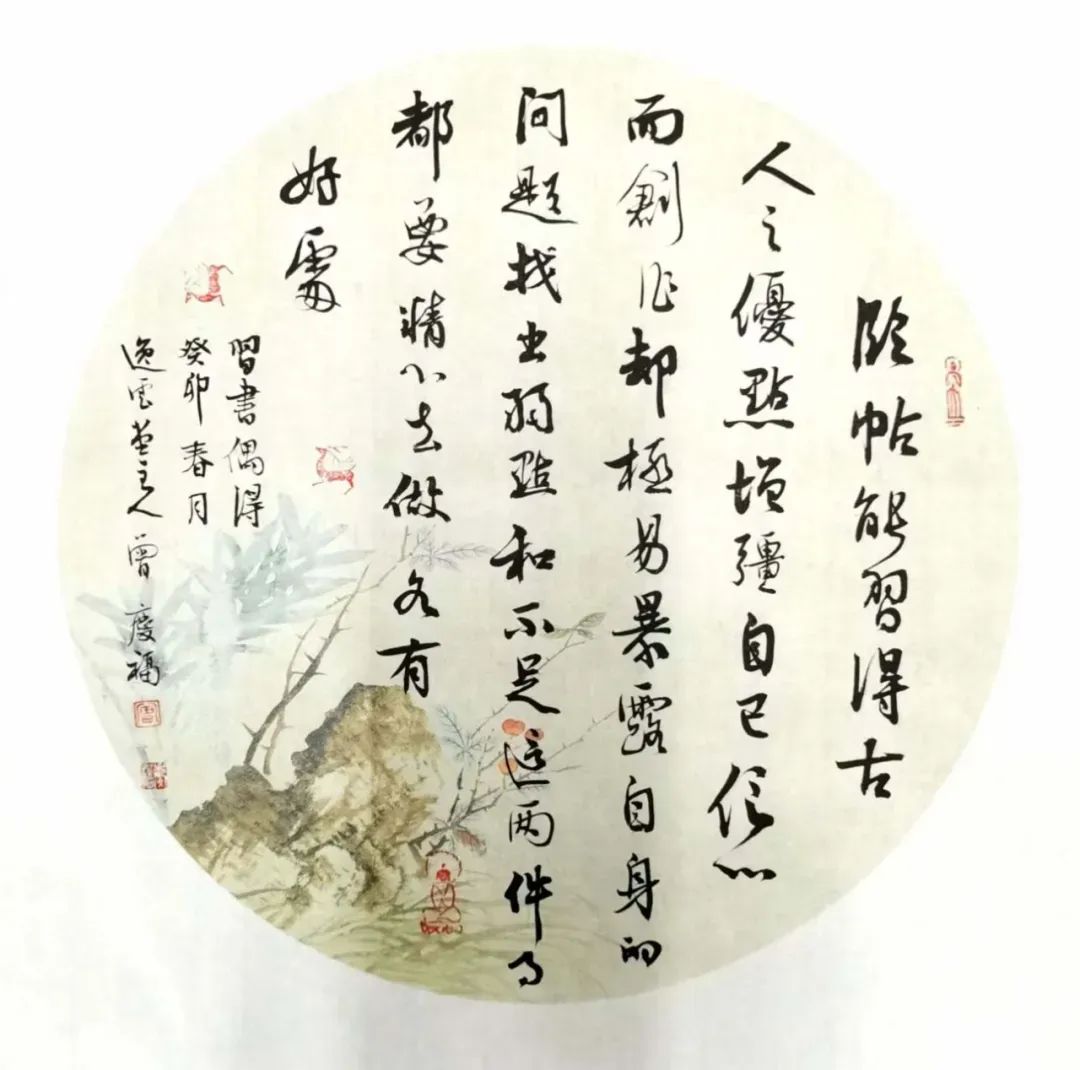 临帖能習得古
人之優點增疆自已信心
而創作却極易暴露自身的
问题找出弱點和不足这两件事
都要精心去做各有
好處
習書偶得
癸卯春月
逸雲堂主人曾慶福